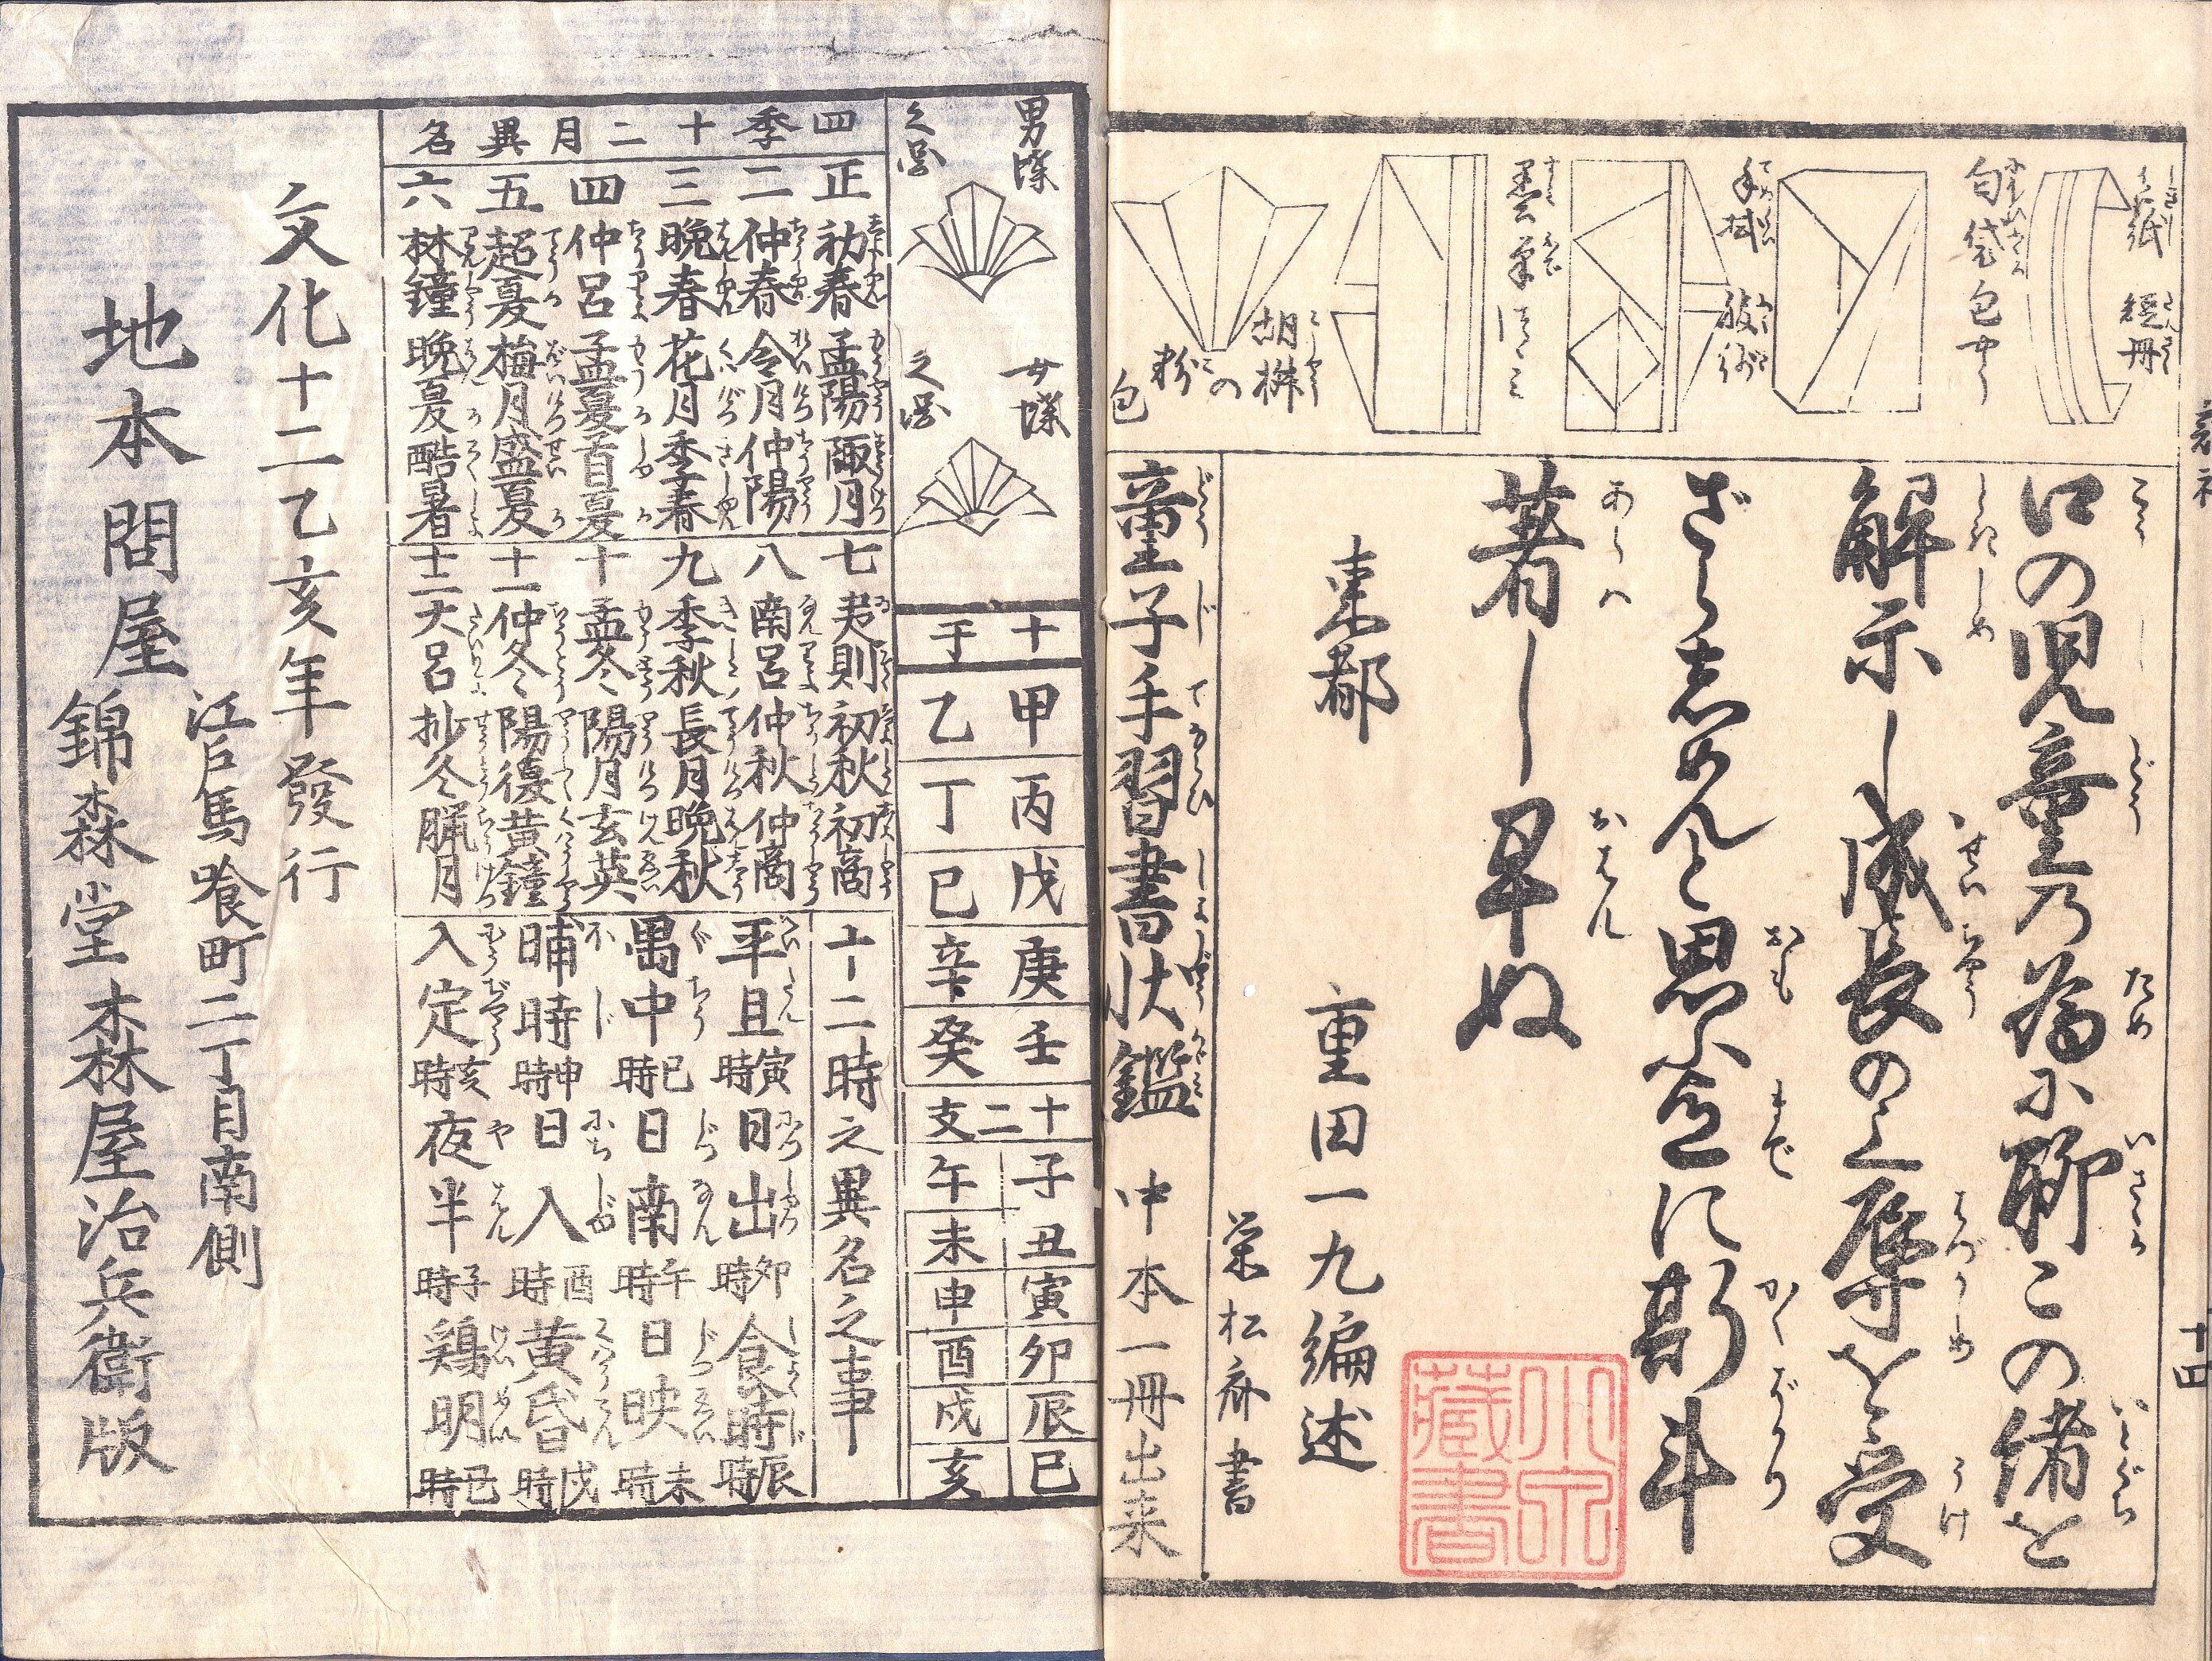 口の児童乃為に聊この緒を
解示し成長の上辱を受
ざらしめんと思ふ迄に斯斗
著し早ぬ
東都
重田一九編述
栄松斎書
童子手習書状鑑 中本一冊出来
短冊
匂袋包やう
手拭
墨筆
胡椒
粉
包
十四
小宮蔵書
男蝶
女蝶
十干
甲 乙
丙 丁
戊 己
庚 辛
壬 癸
十二支
子 午
丑 未
寅 申
卯 酉
辰 戌
巳 亥
四季十二月異名
正 初春 孟陽 陬月
二 仲春 令月 仲陽
三 晩春 花月 季春
四 仲呂 孟夏 首夏
五 超夏 梅月 盛夏
六 林鐘 晩夏 酷暑
七 夷則 初秋 初商
八 南呂 仲秋 仲商
九 季秋 長月 晩秋
十 孟冬 陽月 玄英
十一 仲冬 陽復 黄鐘
十二 大呂 抄冬 臘月
十二時之異名之事
平旦 寅時 日出 卯時 食時 辰時
禺中 巳時 日南 午時 日映 未時
晡時 申時 日入 酉時 黄昏 戌時
入定 亥時 夜半 子時 鶏明 丑時
文化十二乙亥年發行
江戸馬喰町二丁目南側
地本問屋 錦森堂 森屋治兵衛版